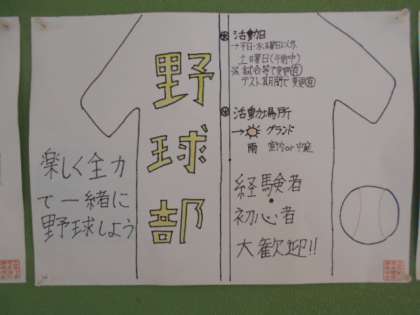 野球部
楽しく全力
で一緒に
野球しよう
活動日
→平日・水曜日以外
土日曜日(午前中)
※試合等で変更有
テスト期間で変更有
活動場所
→ グランド
雨
経験者
初心者
大歓迎!!